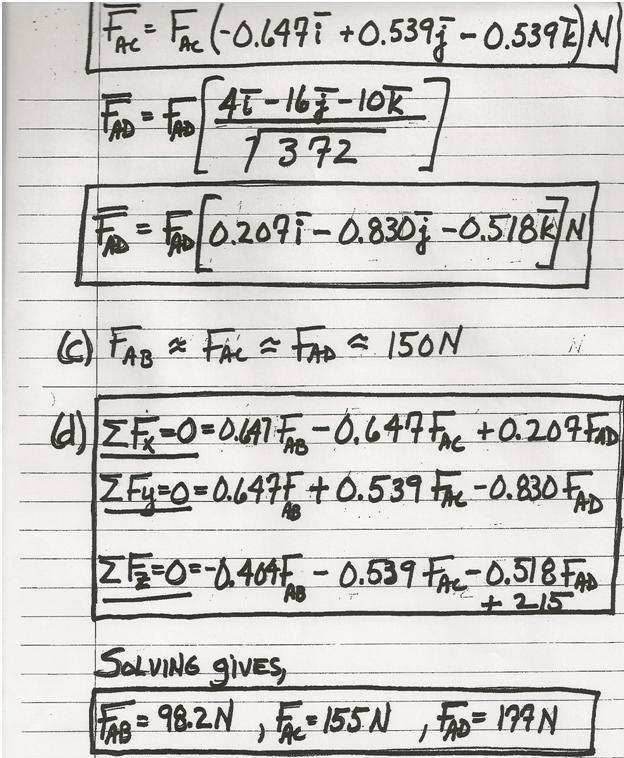 F̅_AC = F_AC (-0.647i̅ + 0.539j̅ - 0.539k̅) N
F̅_AD = F_AD [ (4i̅ - 16j̅ - 10k̅) / √372 ]
F̅_AD = F_AD [0.207i̅ - 0.830j̅ - 0.518k̅] N
(c) F_AB ≈ F_AC ≈ F_AD ≈ 150N
(d) ΣF_x=0 = 0.647F_AB - 0.647F_AC + 0.207F_AD
ΣF_y=0 = 0.647F_AB + 0.539F_AC - 0.830F_AD
ΣF_z=0 = -0.404F_AB - 0.539F_AC - 0.518F_AD
+ 215
SOLVING gives,
F_AB = 98.2N , F_AC = 155N , F_AD = 177N